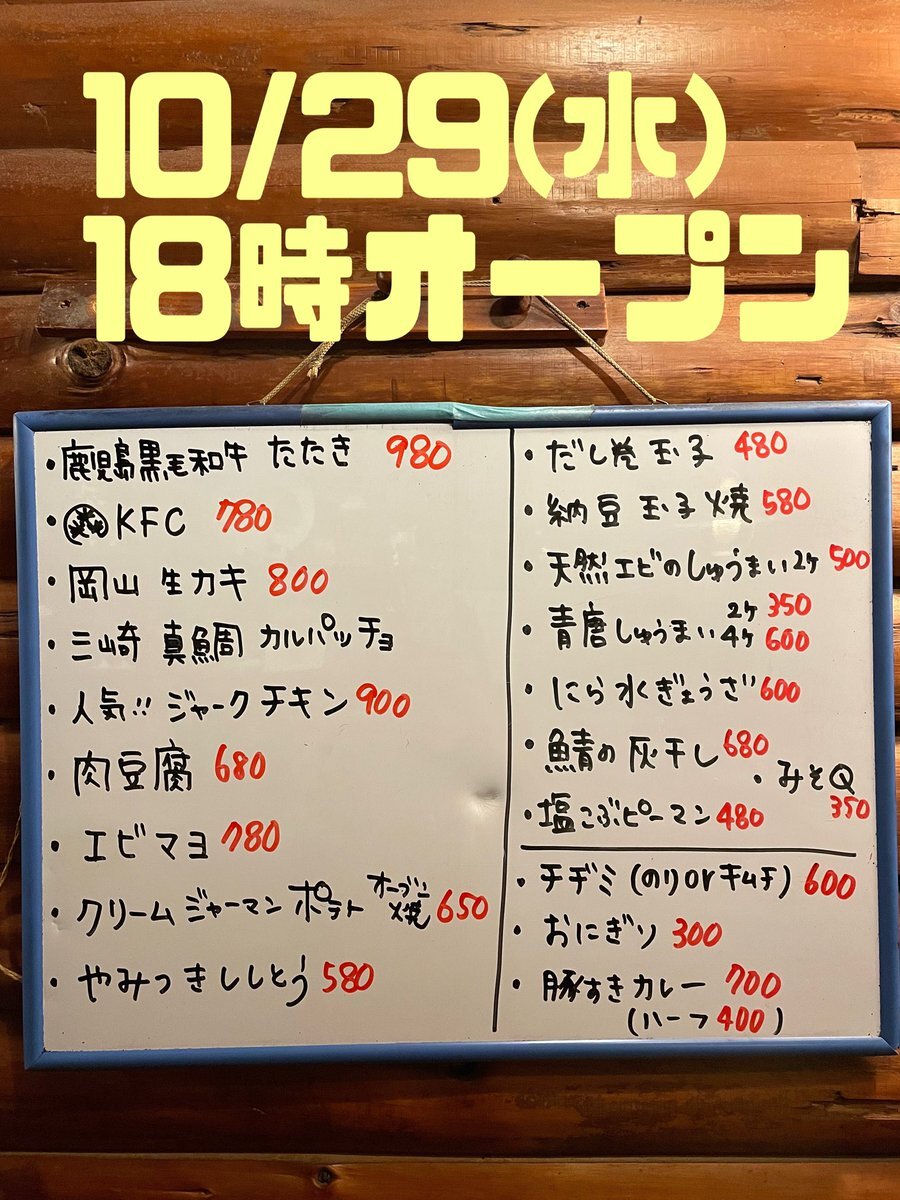 10/29(水)
18時オープン
・鹿児島黒毛和牛 たたき 980
・KFC 780
・岡山 生カキ 800
・三崎 真鯛 カルパッチョ
・人気!! ジャークチキン 900
・肉豆腐 680
・エビマヨ 780
・クリームジャーマンポテト オーブン焼 650
・やみつきししとう 580
・だし巻玉子 480
・納豆玉子焼 580
・天然エビのしゅうまい2ケ 500
・青唐しゅうまい 2ケ 350
4ケ 600
・にら水ぎょうざ 600
・鯖の灰干し 680
・みそQ 350
・塩こぶピーマン 480
・チヂミ(のりorキムチ) 600
・おにぎり 300
・豚すきカレー 700
(ハーフ 400)